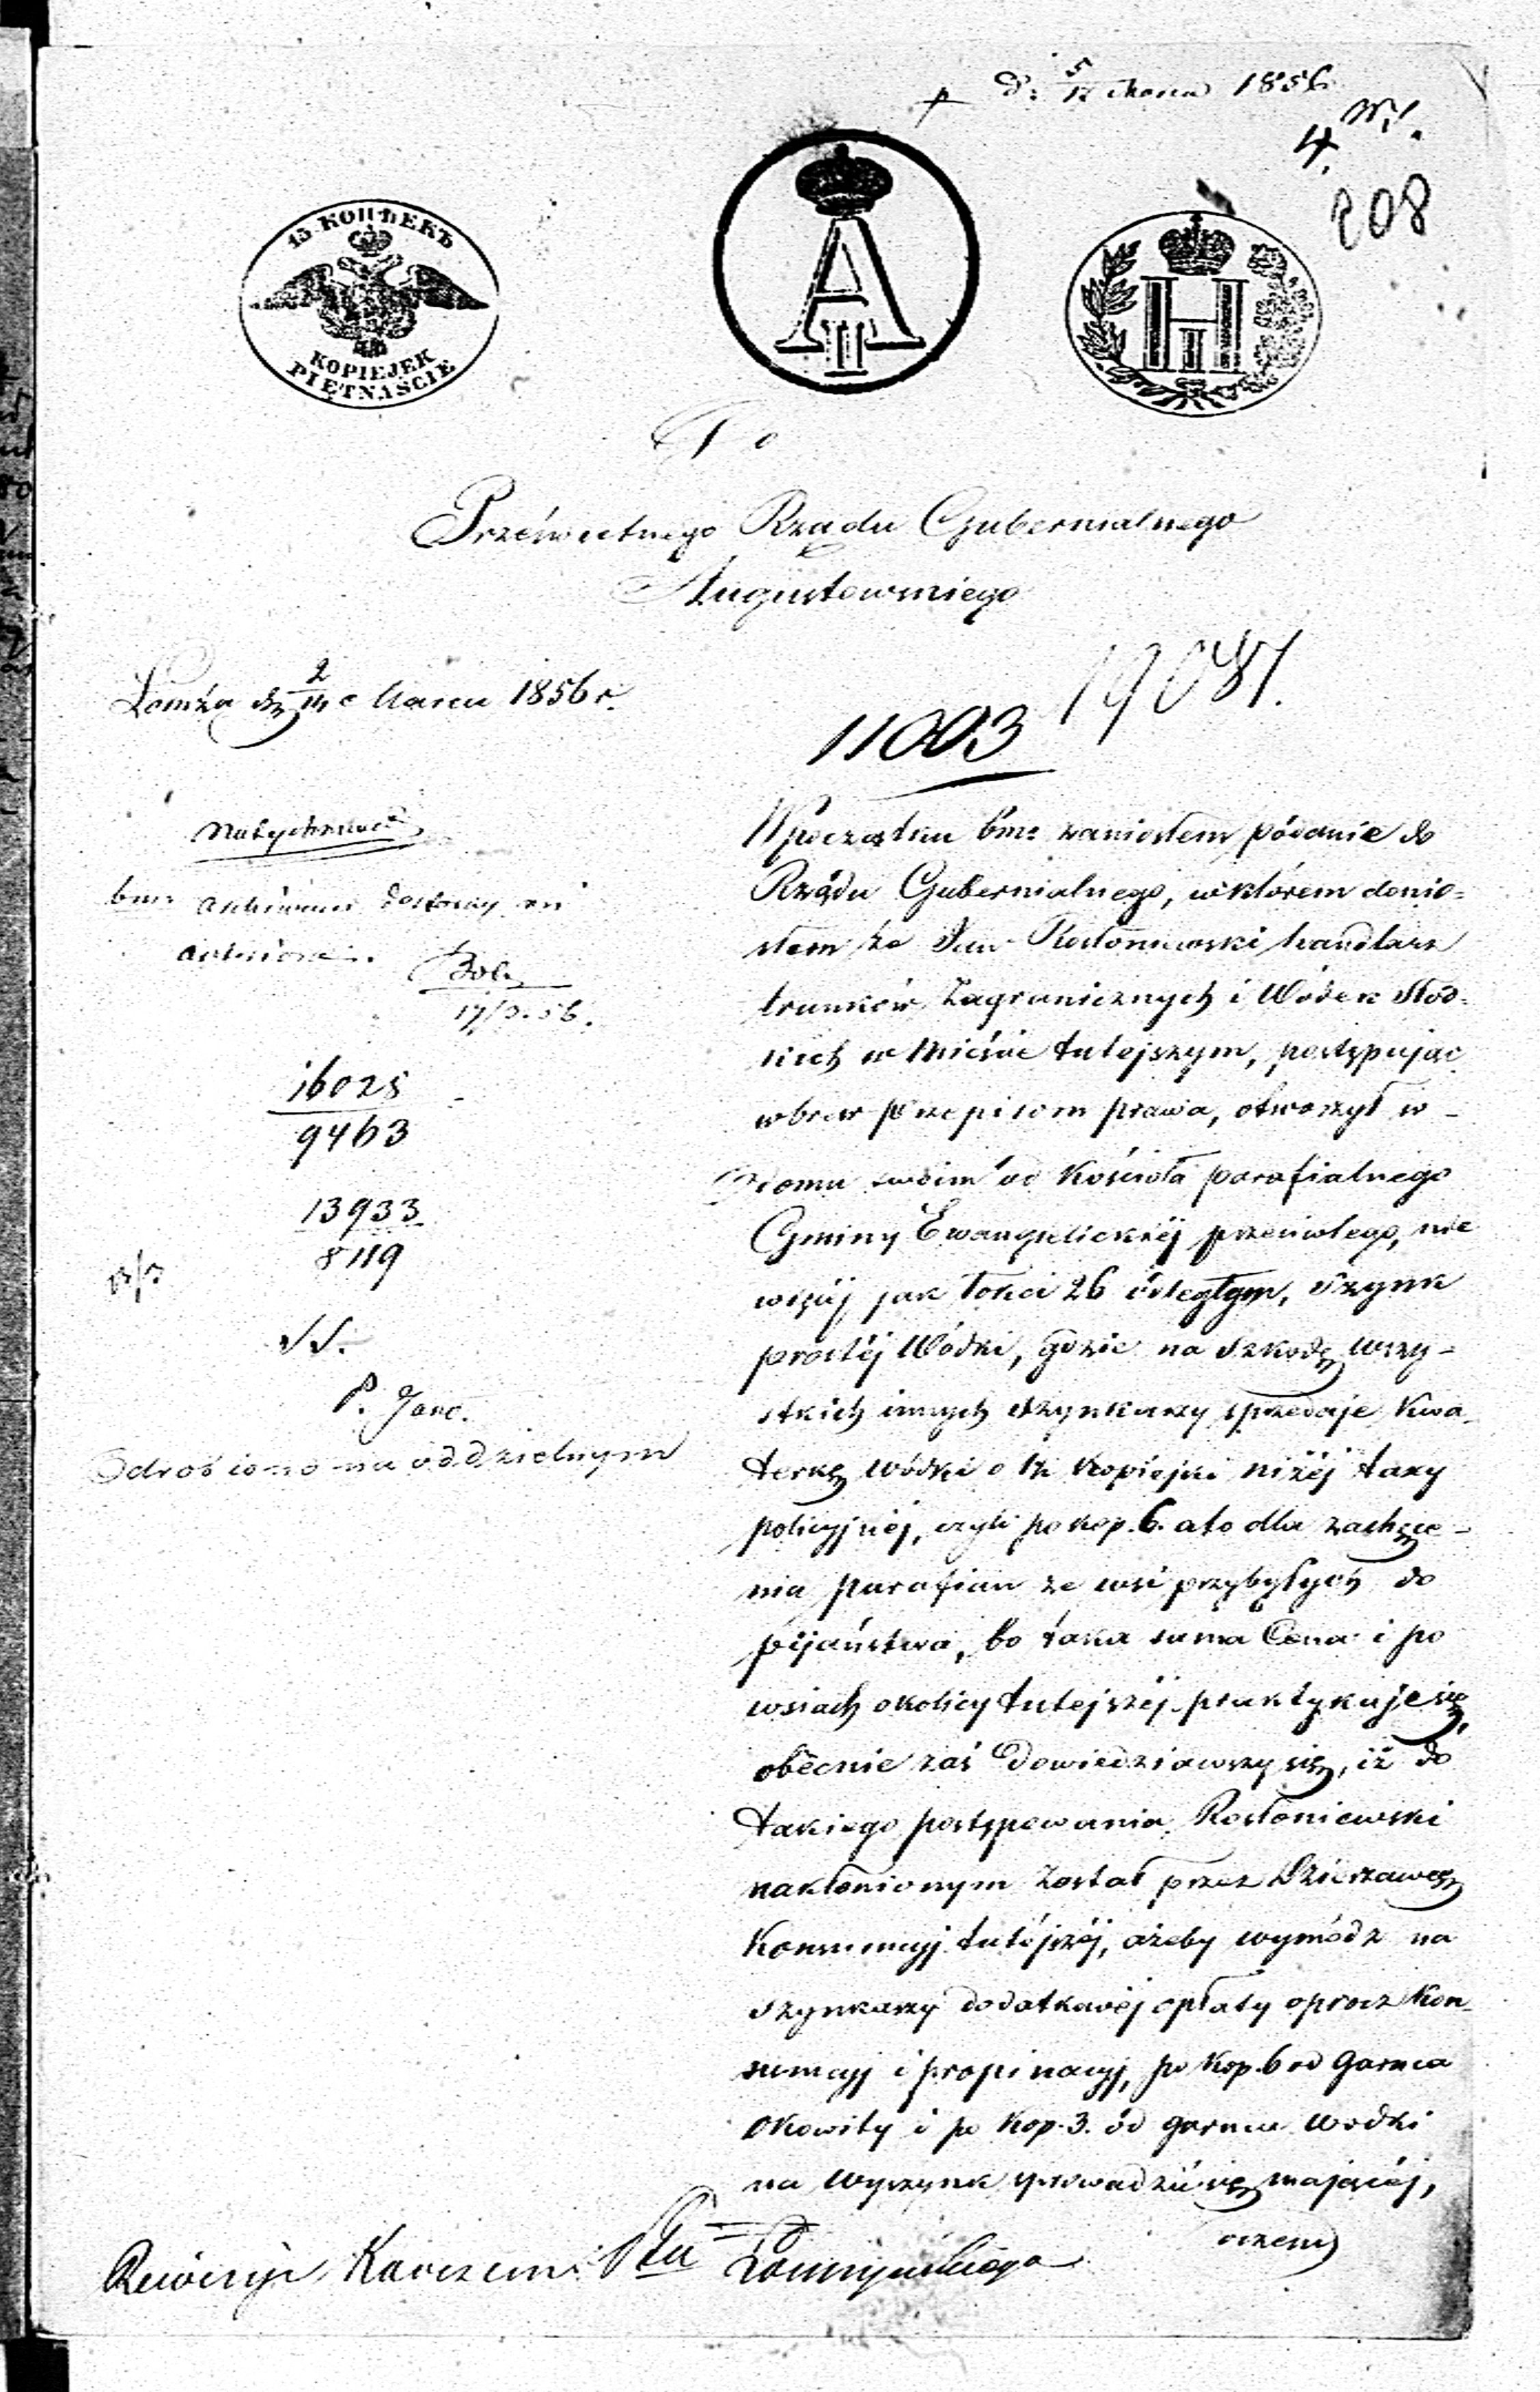 d: 5/17 Marca 1856
4.
208
15 КОПѢЕКЪ
KOPIEJEK
PIĘTNAŚCIE
A II
Н I
Do
Prześwietnego Rządu Gubernialnego
Augustowskiego
Łomża d. 2/14 Marca 1856 r.
19081.
11003
Natychmiast
bm:
Bole
17/3.56.
16025
9463
13933
8119
P. Jano.
Odrobiono na oddzielnym
W początku bm: zaniosłem pódanie do
Rządu Gubernialnego, w którem donio=
słem że Jan Rostoniewski handlarz
trunków Zagranicznych i Wódek Słod=
kich w Mieście tutejszym, postępując
wbrew przepisom prawa, otworzył w -
Domu swoim od Kościoła parafialnego
Gminy Ewangelickiéj przeciwległego, nie
więcéj jak łokci 26 ódległym, Szynk
prostéj Wódki, gdzie na szkodę wszy=
stkich innych szynkarzy sprzedaje kwa
terkę wódki o 1½ kopiejki niżéj taxy
policyjnéj, czyli po kop. 6. a to dla zachęce=
nia parafian ze wsi przybyłych do
pijaństwa, bo taka sama Cena i po
wsiach okolicy tutejszéj praktykuje się,
obecnie zaś dowiedziawszy się, iż do
takiego postępowania Rostoniewski
nakłonionym został przez Dzierżawcę
Konsumcyj tutéjszéj, ażeby wymódz na
szynkarzy dodatkowéj opłaty oprócz Kon=
sumcyj i propinacyj, po kop. 6 od Garnca
Okowity i po kop. 3. ód garnca wódki
na wyszynk sprowadzić się mającéj,
o czem
Rewizyje Karczem Ptu Łomżyńskiego